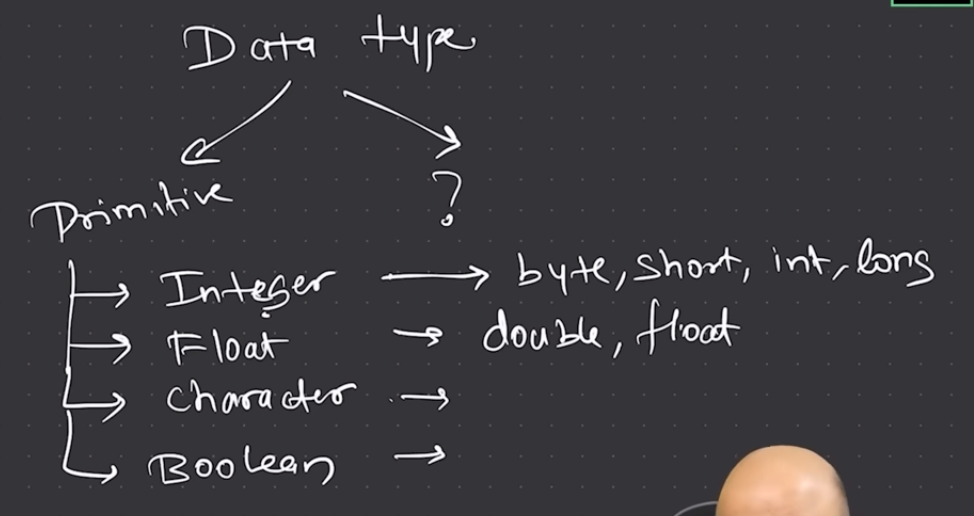 Data type
Primitive ?
Integer → byte, short, int, long
Float → double, float
Character →
Boolean →